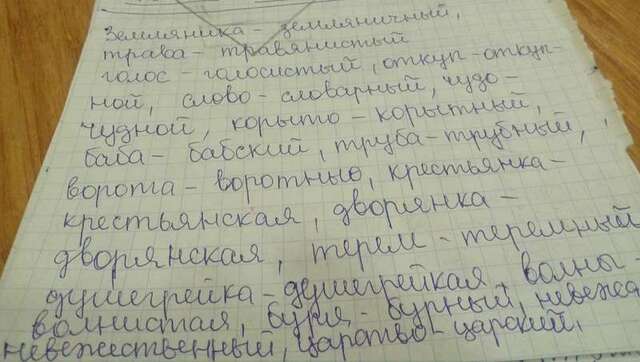 Земляника - земляничный,
трава - травянистый
голос - голосистый, откуп - откуп-
ной, слово - словарный, чудо -
чудной, корыто - корытный,
баба - бабский, труба - трубный,
ворота - воротные, крестьянка -
крестьянская, дворянка -
дворянская, терем - теремный
душегрейка - душегрейкая, волны -
волнистая, буря - бурный, невежа
невежественный, царство - царский,